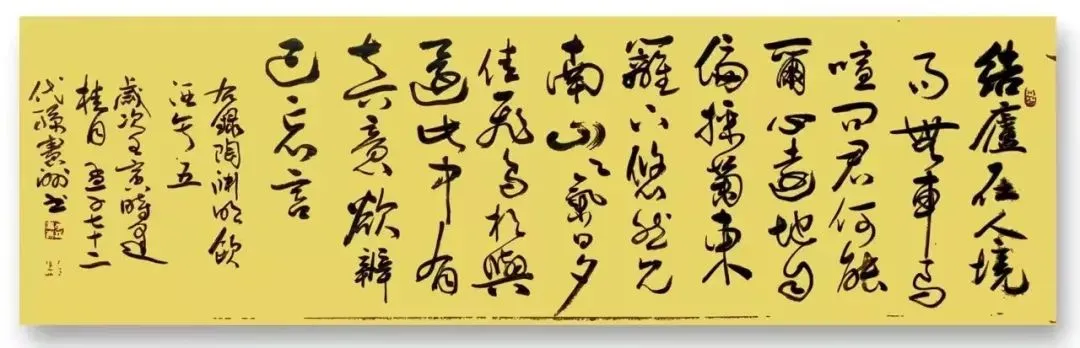 結廬在人境
而無車馬
喧問君何能
爾心遠地自
偏採菊東
籬下悠然見
南山〻氣日夕
佳飛鳥相與
還此中有
真意欲辨
已忘言
右錄陶渊明飲
酒其五
歲次壬寅時
桂月孟子七十二
代孫憲洲書